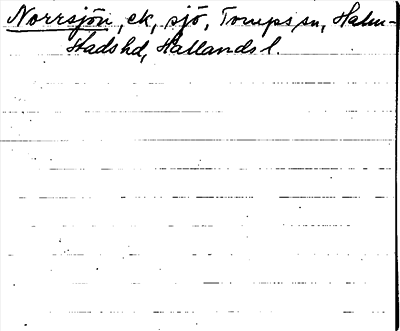 Norrsjön, ek, sjö, Torups sn, Halm-
stads hd, Hallands l.